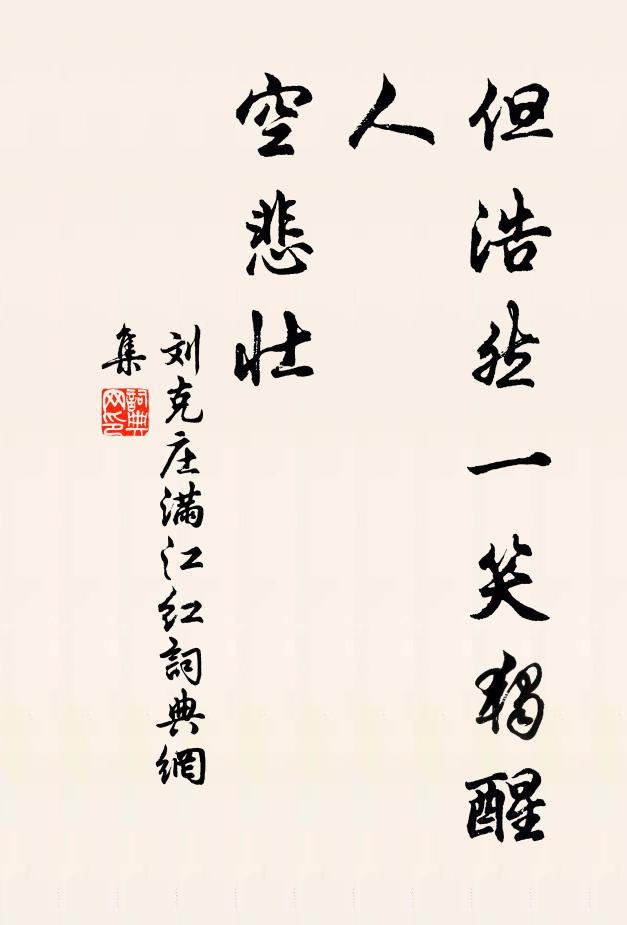 但浩然一笑独醒
人
空悲壮
刘克庄满江红詞典網
集
詞典网印